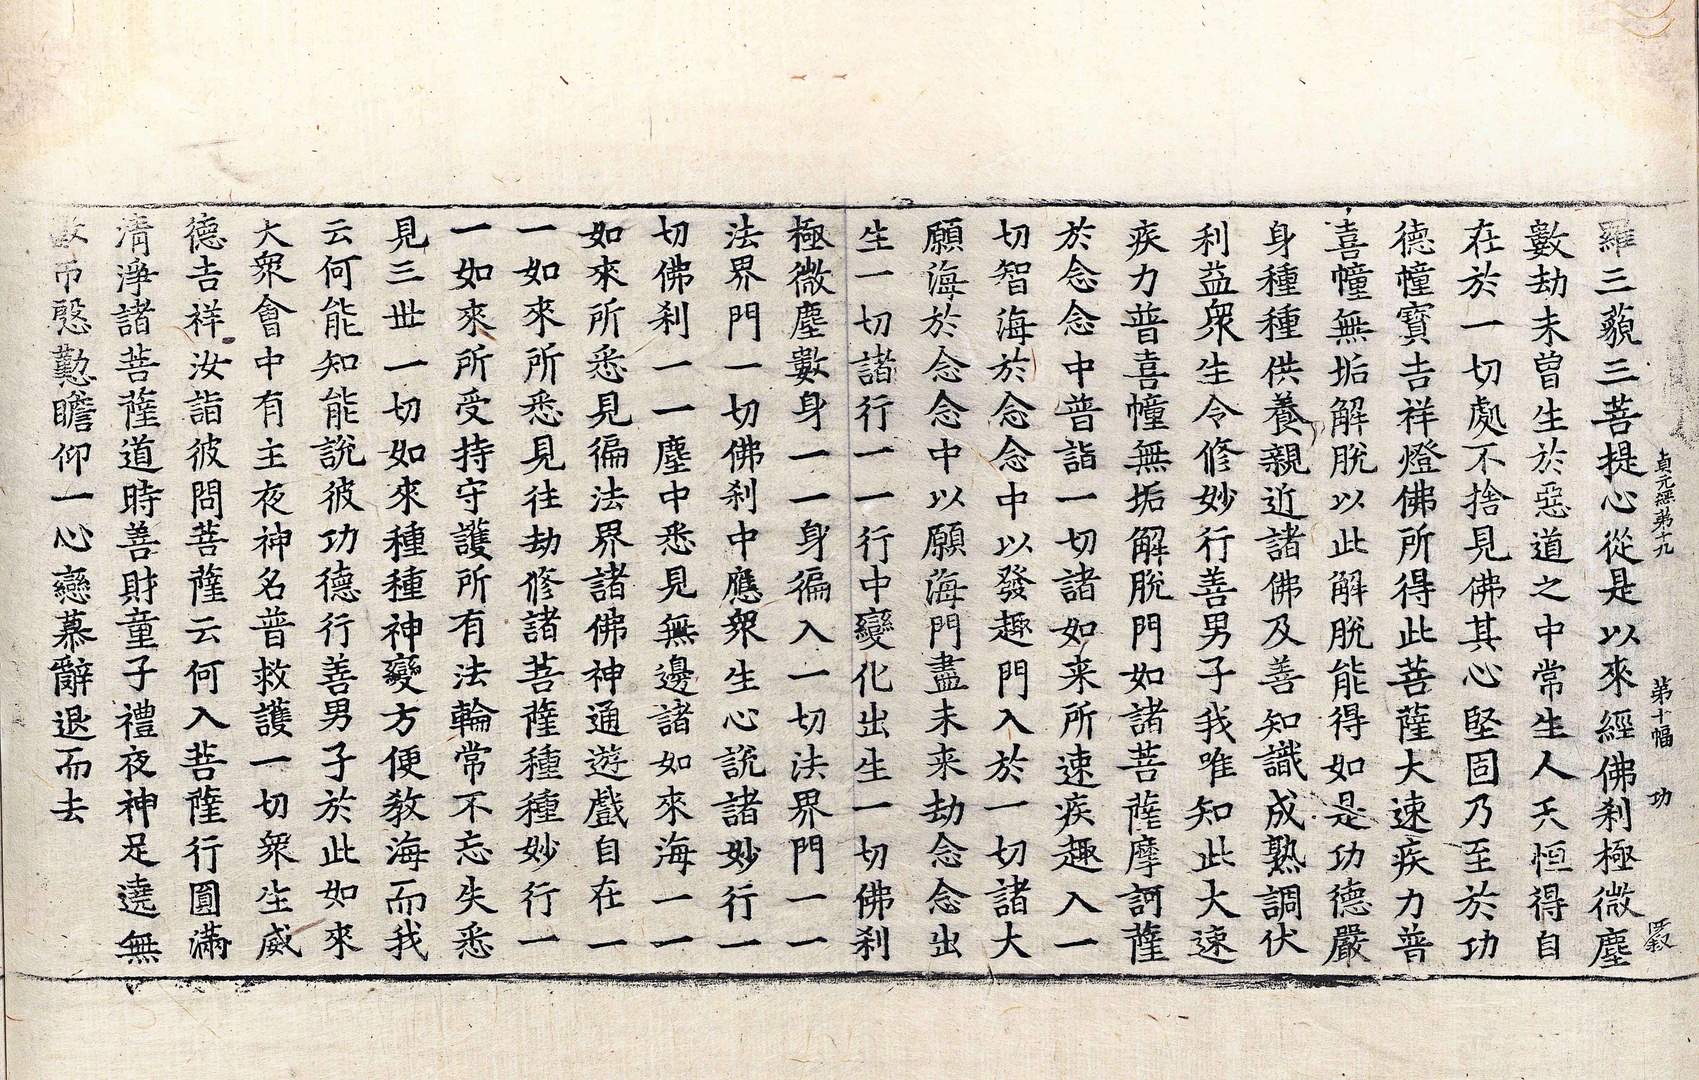 貞元經第十九　第十幅　功
羅三藐三菩提心從是以來經佛剎極微塵
數劫未曾生於惡道之中常生人天恒得自
在於一切處不捨見佛其心堅固乃至於功
德幢寶吉祥燈佛所得此菩薩大速疾力普
喜幢無垢解脫以此解脫能得如是功德嚴
身種種供養親近諸佛及善知識成熟調伏
利益衆生令修妙行善男子我唯知此大速
疾力普喜幢無垢解脫門如諸菩薩摩訶薩
於念念中普詣一切諸如来所速疾趣入一
切智海於念念中以發趣門入於一切諸大
願海於念念中以願海門盡未来劫念念出
生一切諸行一一行中變化出生一切佛剎
極微塵數身一一身徧入一切法界門一一
法界門一切佛剎中應衆生心說諸妙行一
切佛剎一一塵中悉見無邊諸如來海一一
如來所悉見徧法界諸佛神通遊戲自在一
一如來所悉見往劫修諸菩薩種種妙行一
一如來所受持守護所有法輪常不忘失悉
見三世一切如來種種神變方便教海而我
云何能知能說彼功德行善男子於此如來
大衆會中有主夜神名普救護一切衆生威
德吉祥汝詣彼問菩薩云何入菩薩行圓滿
清淨諸菩薩道時善財童子禮夜神足遶無
數帀慇懃瞻仰一心戀慕辭退而去